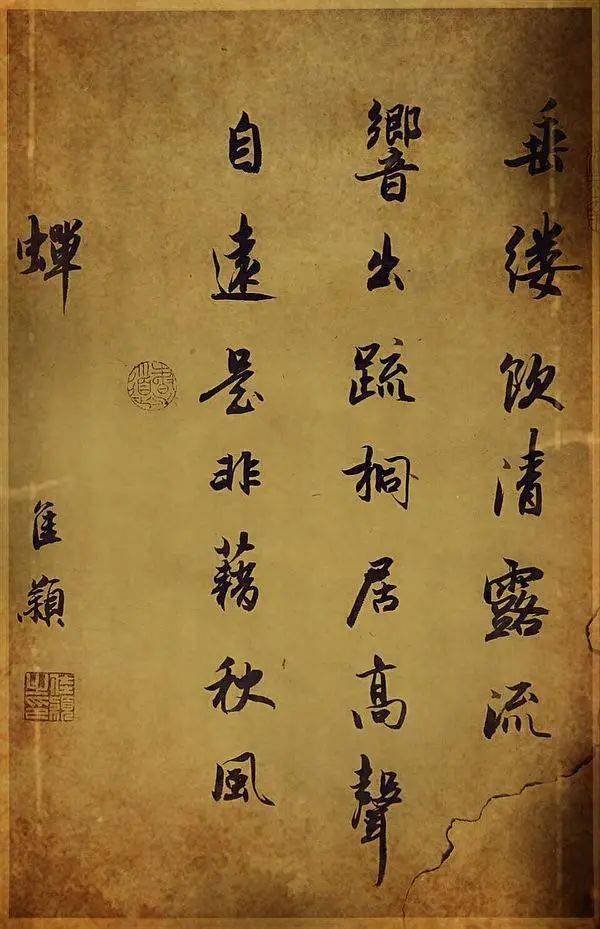 垂缕飲清露流
響出疏桐居高聲
自遠是非藉秋風
蝉
佳穎